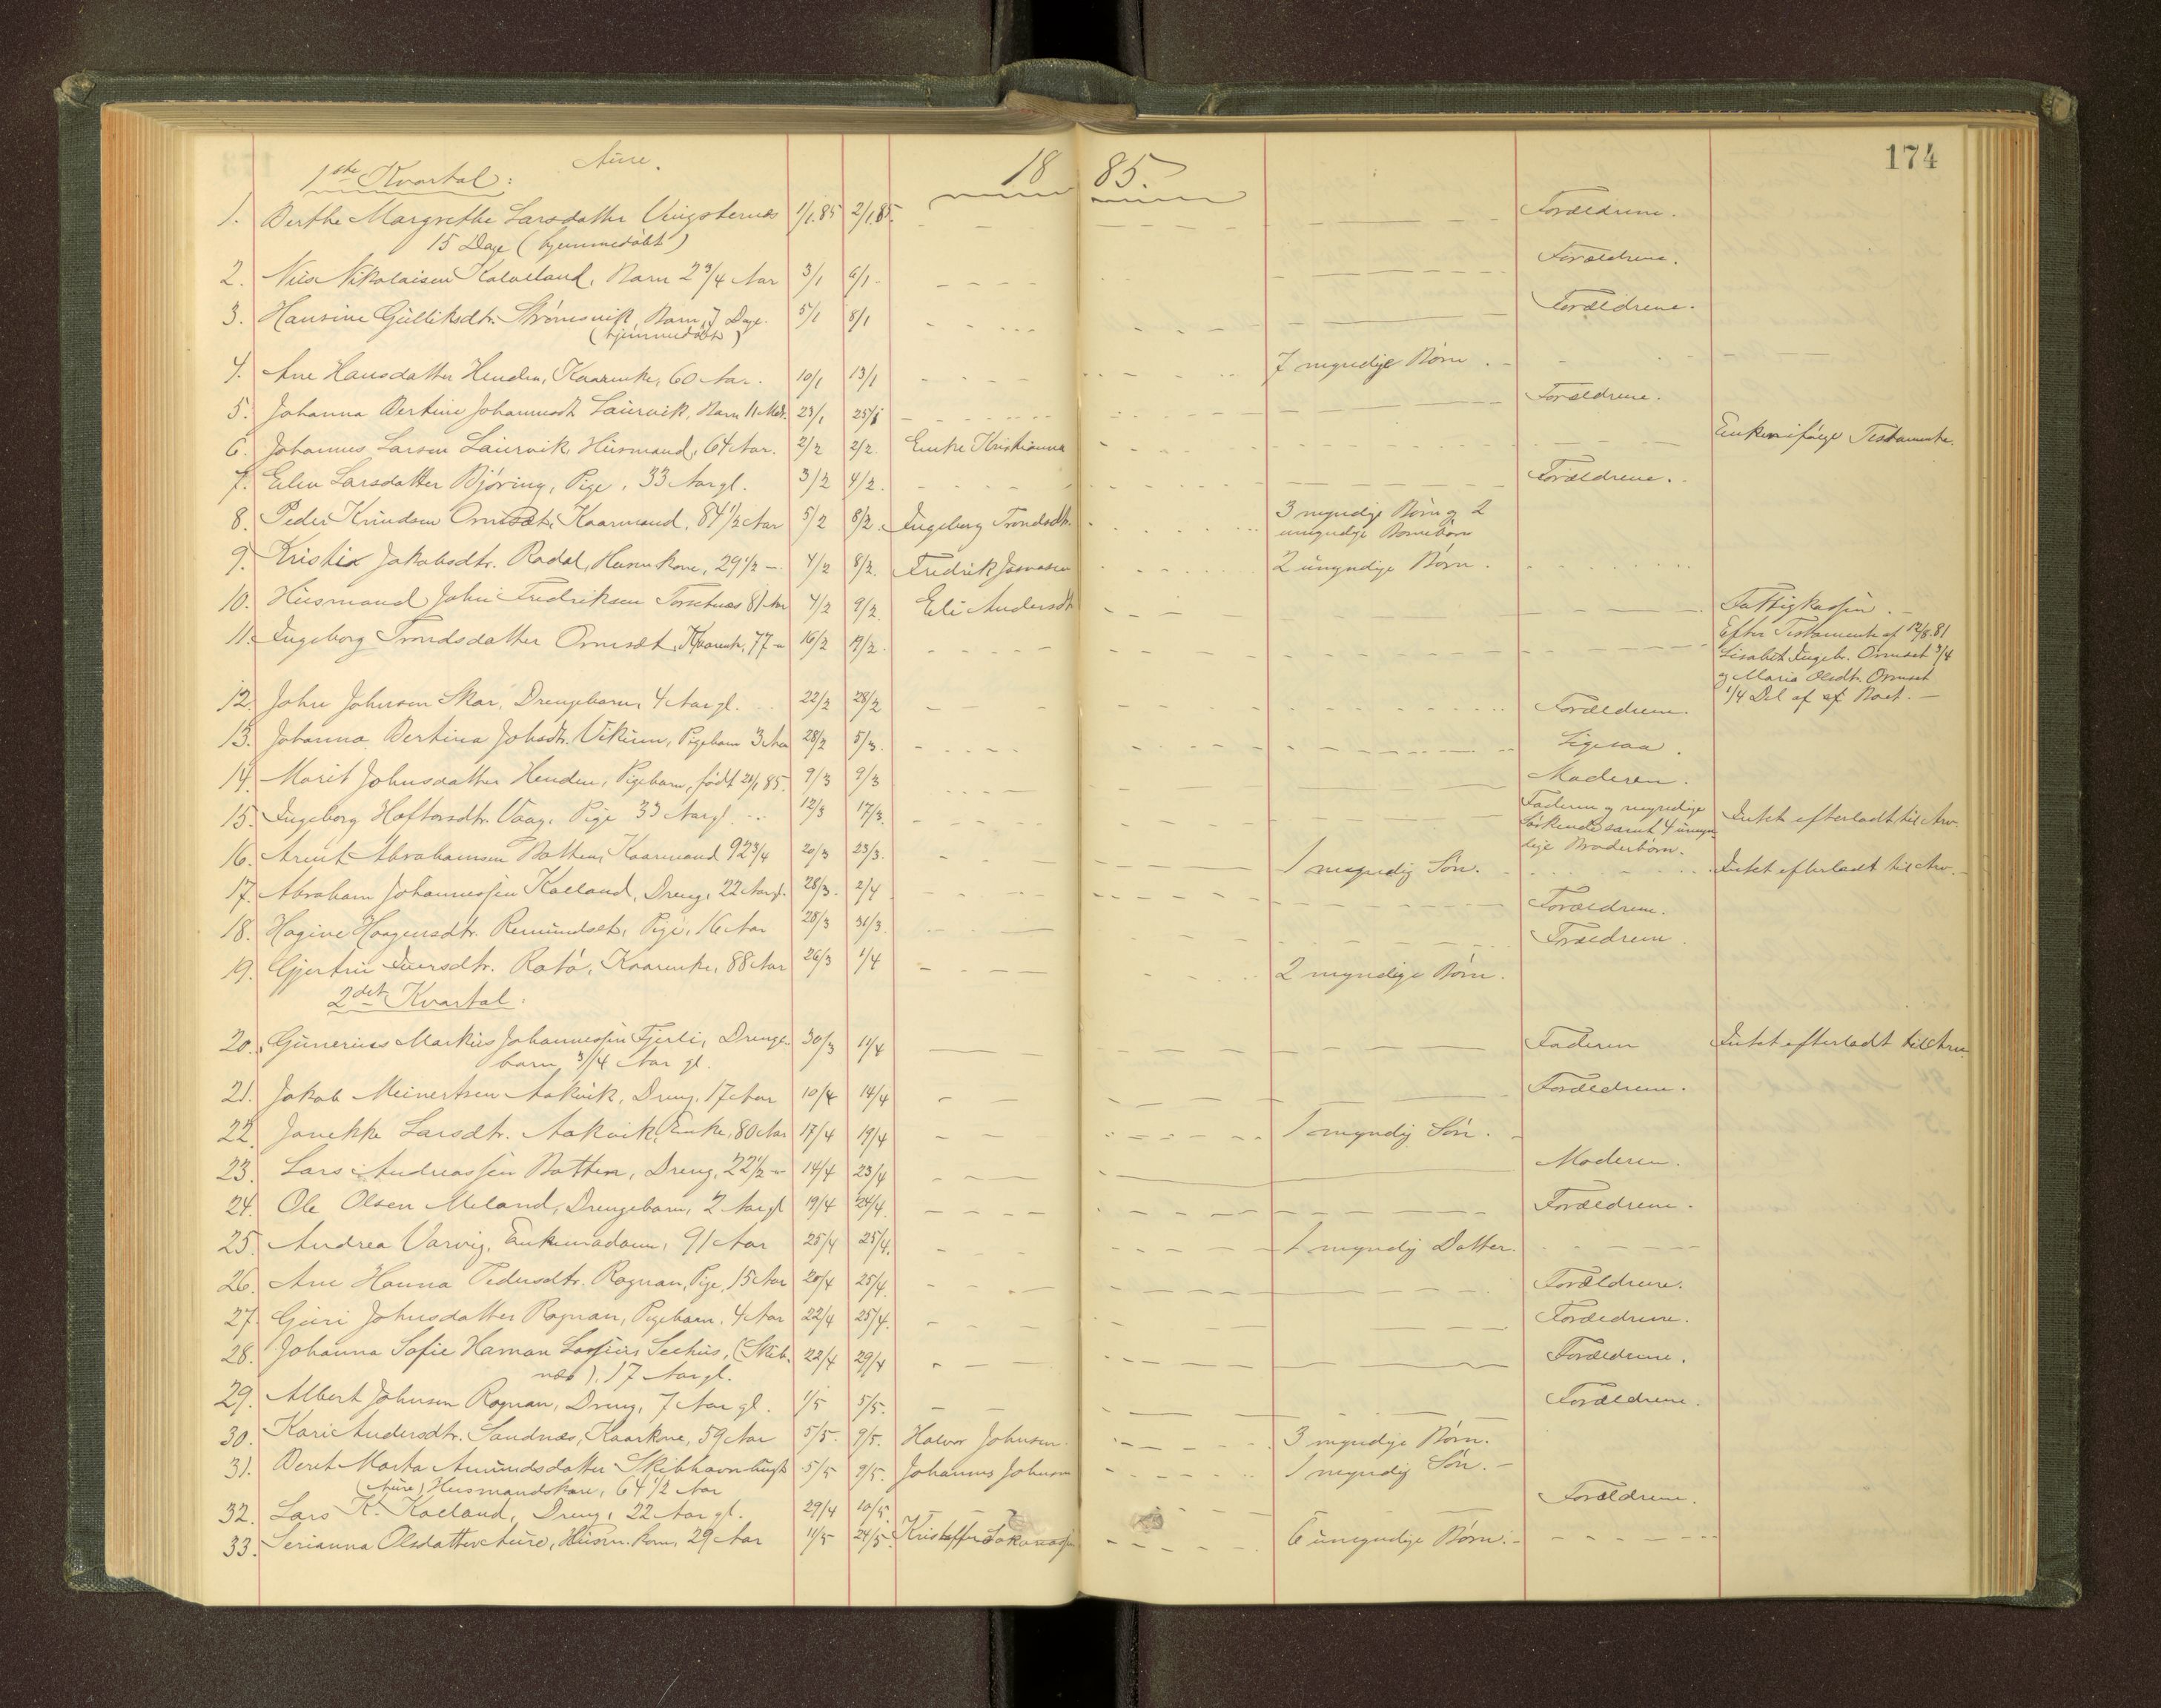 174
Aure.
1ste Kvartal: 1885.
1. Berthe Margrethe Larsdatter Vingsternes 1/1.85 2/1.85. Forældrene.
15 Dage (hjemmedøbt)
2. Nils Nikolaisen Kalvelland, Barn 2 3/4 Aar 3/1 6/1 Forældrene.
3. Hansine Gulliksdtr. Strømsvik Barn, 7 Dage. 5/1 8/1 Forældrene.
(hjemmedøbt)
4. Ane Hansdatter Henden, Kaarenke, 60 Aar. 10/1 13/1 7 myndige Børn.
5. Johanna Bertine Johannesdt Laurvik, Barn 11 Mdr. 23/1 25/1 Forældrene.
6. Johannes Larsen Laurvik, Husmand, 64 Aar. 2/2 2/2 Enke Kristianna Enken ifølge Testamente.
7. Elen Larsdatter Bjøring, Pige, 33 Aar gl. 3/2 4/2. Forældrene.
8. Peder Knudsen Ormsæt, Kaarmand, 84 1/2 Aar 5/2 8/2. Ingeborg Trondsdtr. 3 myndige Børn og 2
umyndige Børnebørn
9. Jakobsdtr. Rodal, Husm.kone, 29 1/2 — 4/2 8/2. Fredrik 2 umyndige Børn.
10. Husmand John Fredriksen Torsetnes 81 Aar 4/2 9/2. Eli Andersdt Fattigkassen.
11. Ingeborg Trondsdatter Ormsæt, Kaarenk, 77 — 16/2 19/2. Efter Testamente af 12/8.81
Lisabet Ingebr. Ormset 3/4
og Maria Olsdtr. Ormset
1/4 Del af Boet.
12. John Johnsen Skar, Drengebarn, 4 Aar gl. 22/2 28/2 Forældrene.
13. Johanna Bertina Johsdtr. Vikum, Pigebarn 3 Aar 28/2 5/3. Ligesaa.
14. Marit Johnsdatter Henden, Pigebarn, født 21/1 85. 9/3 9/3 Moderen.
15. Ingeborg Haftorsdtr. Vaag, Pige 33 Aar gl. 12/3 17/3. Faderen og myndige Intet efterladt til Arv.
Søskende samt 4 umyn-
dige Broderbørn.
16. Arnt Abrahamsen Botten, Kaarmand 92 3/4 20/3 23/3. 1 myndig Søn. Intet efterladt til Arv.
17. Abraham Johannessen Kalland, Dreng, 22 Aar gl. 28/3. 2/4 Forældrene.
18. Hagine Haagensdtr. Remundset, Pige, 16 Aar 28/3 31/3. Forældrene.
19. Gjertru Iversdtr. Rotø, Kaarenke, 88 Aar 26/3 1/4 2 myndige Børn.
2det Kvartal:
20. Gunerius Markus Johannessen Fjerli, Drenge- 30/3 11/4 Faderen Intet efterladt til Arv.
barn 3/4 Aar gl.
21. Jakob Meinertsen Aakvik, Dreng, 17 Aar 10/4 14/4 Forældrene.
22. Janekke Larsdtr. Aakvik, Enke, 80 Aar 17/4 19/4 1 myndig Søn.
23. Lars Andreassen Botten, Dreng, 22 1/2 — 14/4 23/4 Moderen.
24. Ole Olsen Meland, Drengebarn, 2 Aar gl 19/4 24/4. Forældrene.
25. Andrea Varvig, Enkemadam, 91 Aar 25/4 25/4. 1 myndig Datter.
26. Ane Hanna Pedersdtr. Rognan, Pige, 15 Aar 20/4 25/4. Forældrene.
27. Guri Johnsdatter Rognan, Pigebarn, 4 Aar 22/4 25/4. Forældrene.
28. Johanna Sofie Haman Seehus, (Skib- 22/4 29/4 Forældrene.
næs), 17 Aar gl.
29. Albert Johnsen Rognan, Dreng, 7 Aar gl. 1/5 5/5. Forældrene.
30. Kari Andersdtr. Sandnæs, Kaarkone, 59 Aar 5/5. 9/5. Halvor Johnsen. 3 myndige Børn.
31. Beret Marta Amundsdatter 5/5 9/5. Johannes Johnsen 1 myndig Søn.
(Aure) Husmandskone, 64 1/2 Aar
32. Lars K. Kalland, Dreng, 22 Aar gl. 29/4 10/5. Forældrene.
33. Serianna Olsdatter Aure, Husm.kone, 29 Aar 11/5 24/5. Kristoffer 6 umyndige Børn.